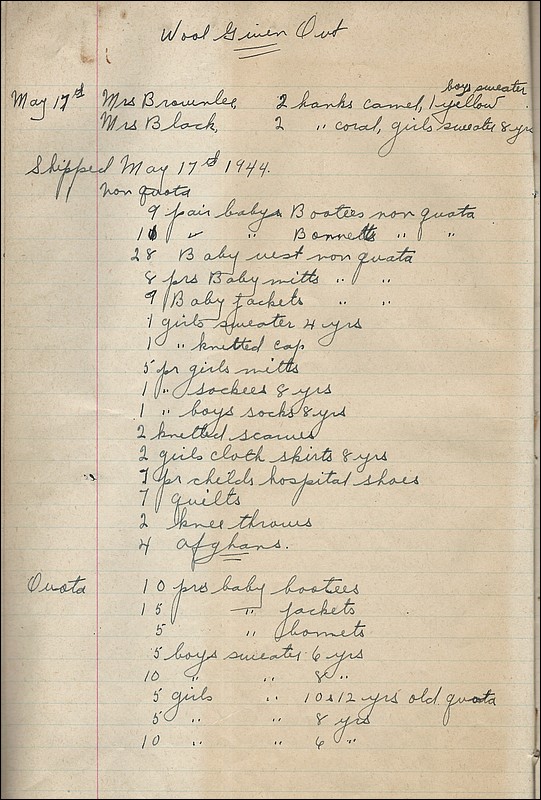 Wool Given Out
boys sweater
May 17th Mrs Brownlee, 2 hanks camel, 1 yellow
Mrs Black, 2 " coral, girls sweater 8 yrs
Shipped May 17th 1944.
non quota
9 pair babys Bootees non quota
10 " " Bonnetts " "
28 Baby vest non quota
8 prs Baby mitts " "
9 Baby Jackets " "
1 girls sweater 4 yrs
1 " knitted cap
5 pr girls mitts
1 " sockees 8 yrs
1 " boys socks 8 yrs
2 knetted scarves
2 girls cloth skirts 8 yrs
7 pr childs hospital shoes
7 quilts
2 knee throws
4 afghans.
Quota 10 prs baby bootees
15 " Jackets
5 " bonnets
5 boys sweater 6 yrs
10 " " 8 "
5 girls " 10 & 12 yrs old quota
5 " " 8 yrs
10 " " 6 "